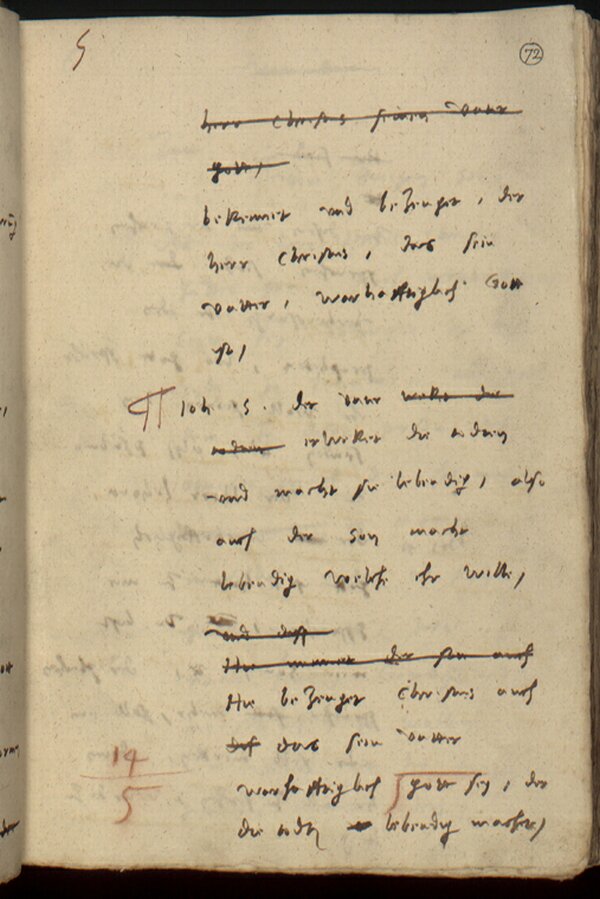 5
72
herr Christus seinen vatter
gott,
bekennet und bezeuget, der
herr Christus, das sein
vatter, warhafftiglich Gott
ist,
¶ Ioh. 5. der vatter weket der
erweket die todten
und macht sie lebendig, also
auch der son macht
lebendig welche ehr will,
und
Hie nennet der son auch
Hie bezeuget Christus auch
das sein vatter
warhafftiglich gott sey, der
14
5
die todten lebendig machet,